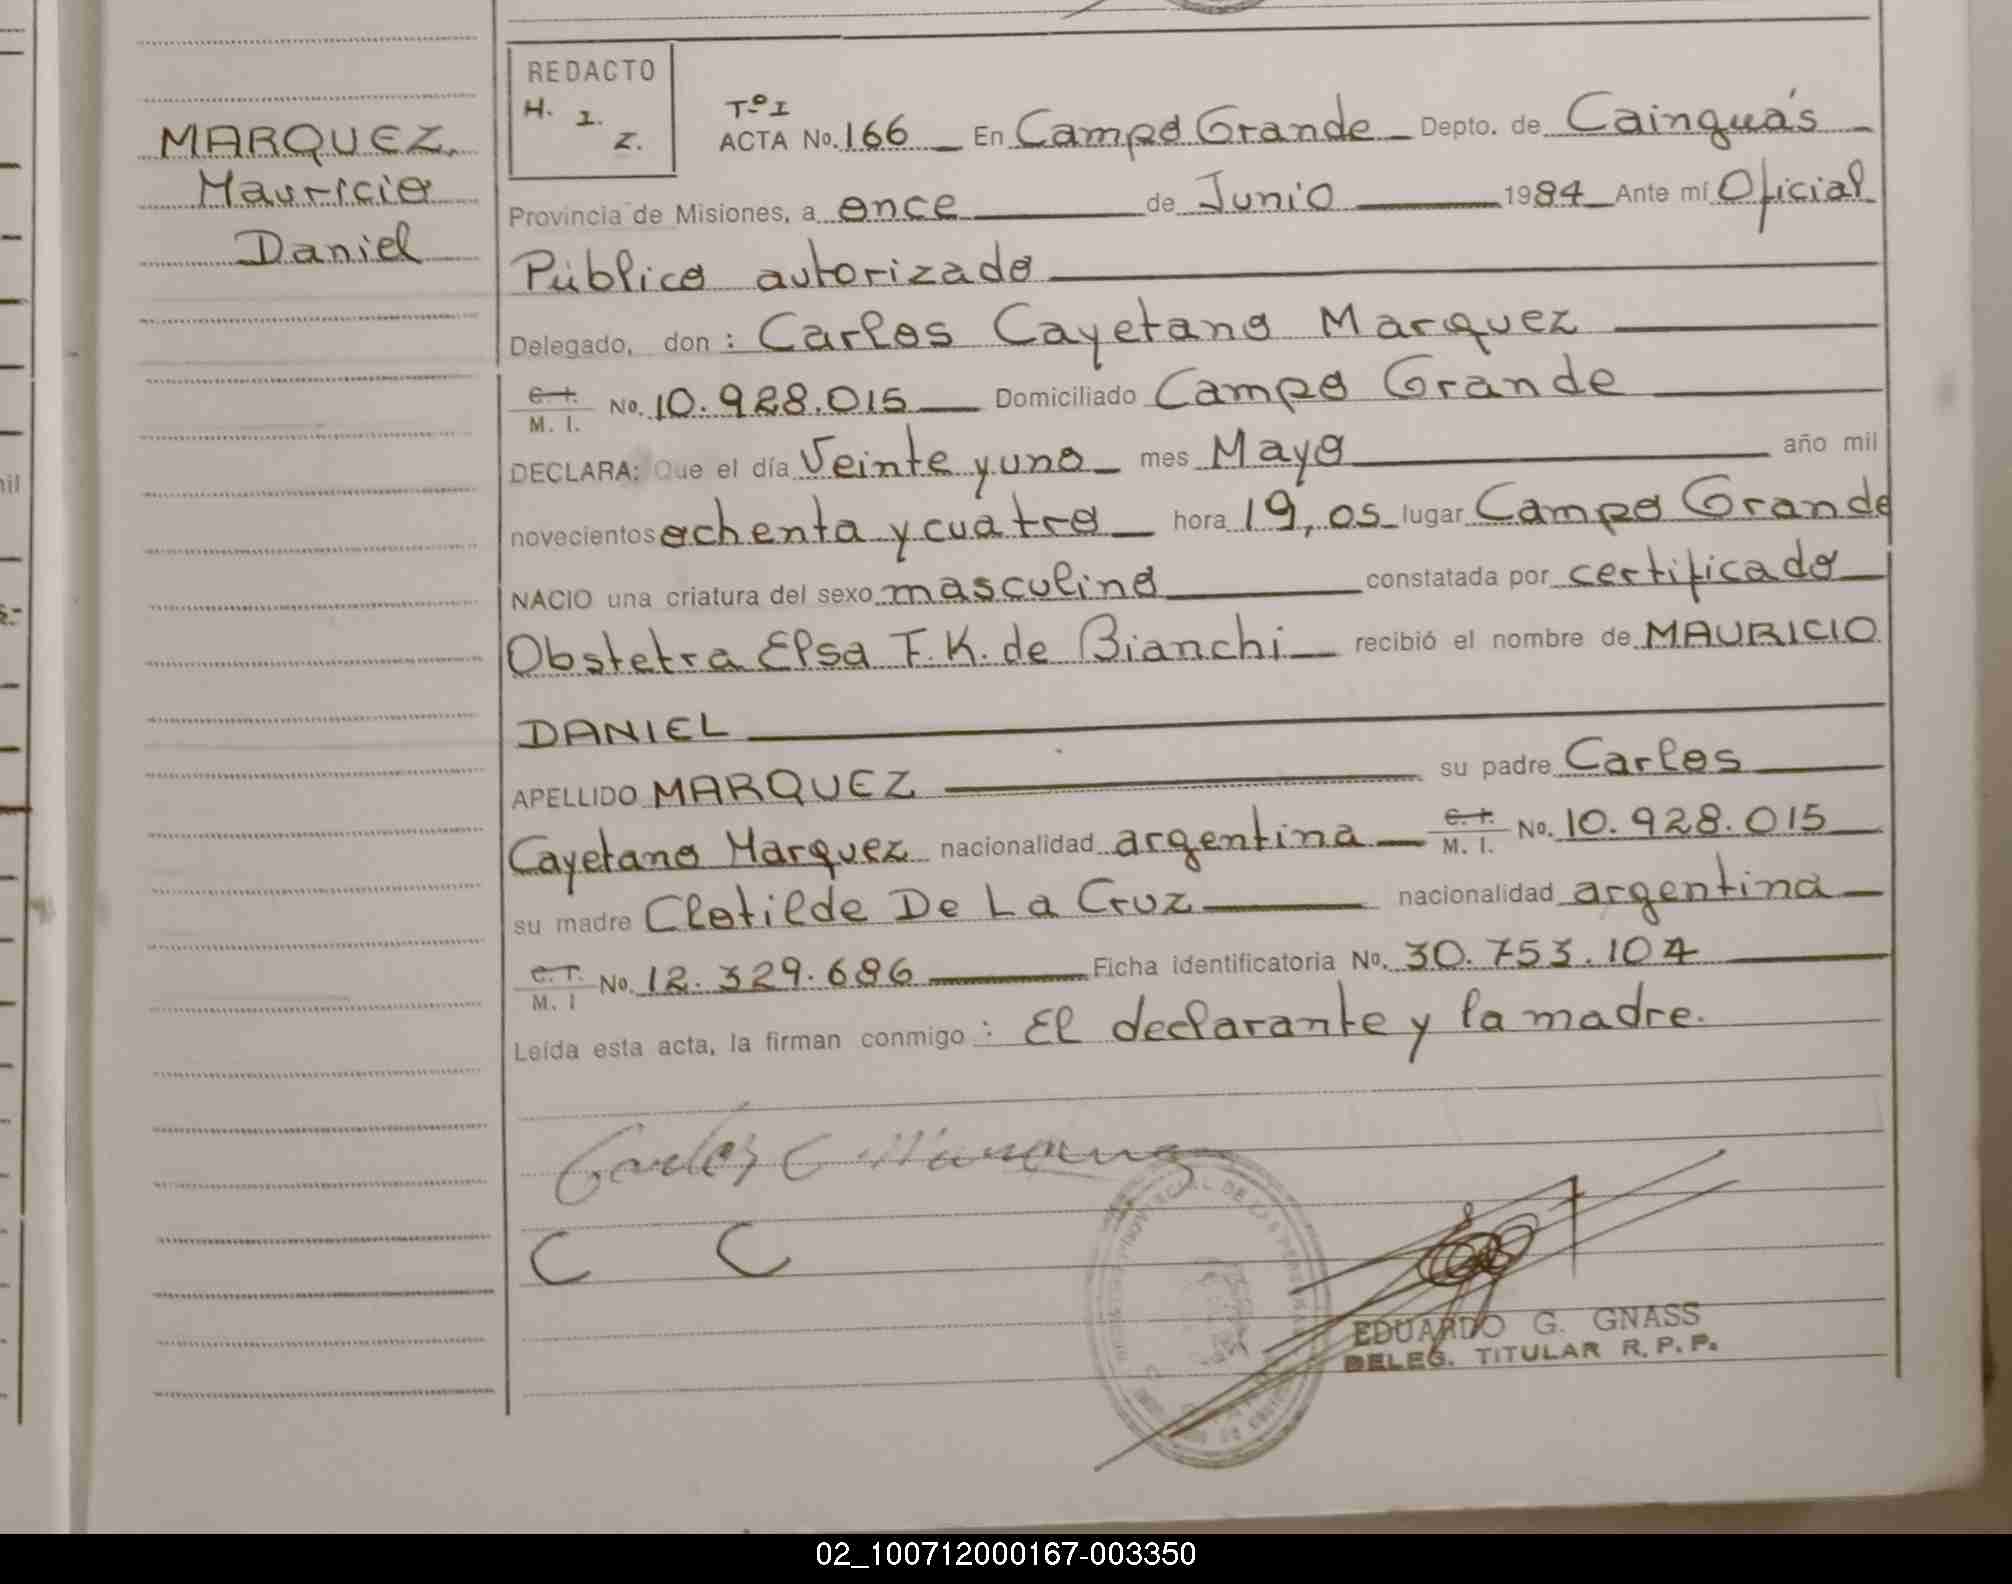 MARQUEZ,
Mauricio
Daniel
REDACTO
H. I. Z.
Tº I
ACTA No. 166 En Campo Grande Depto. de Cainguás
Provincia de Misiones, a once de Junio 1984 Ante mí Oficial
Público autorizado
Delegado, don : Carlos Cayetano Marquez
C.I. M. I. No. 10.928.015 Domiciliado Campo Grande
DECLARA: Que el día Veinte y uno mes Mayo año mil
novecientos ochenta y cuatro hora 19,05 lugar Campo Grande
NACIO una criatura del sexo masculino constatada por certificado
Obstetra Elsa F. K. de Bianchi recibió el nombre de MAURICIO
DANIEL
APELLIDO MARQUEZ su padre Carlos
Cayetano Marquez nacionalidad argentina C.I. M. I. No. 10.928.015
su madre Clotilde De La Cruz nacionalidad argentina
C.I. M. I No. 12.329.686 Ficha identificatoria No. 30.753.104
Leída esta acta, la firman conmigo : El declarante y la madre.
Carlos C Marquez
C C
EDUARDO G. GNASS
DELEG. TITULAR R. P. P.
02_100712000167-003350